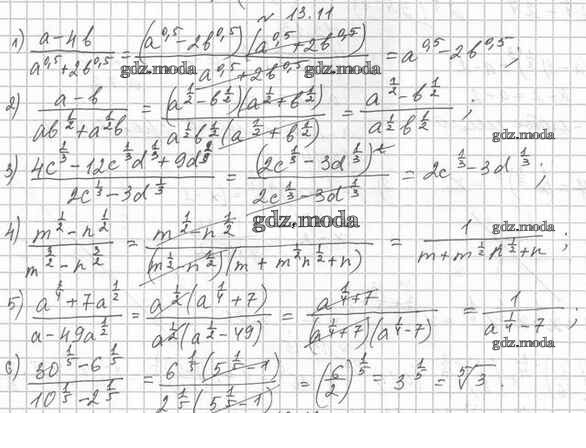 № 13.11
1) (a-4b)/(a^0,5+2b^0,5) = ((a^0,5-2b^0,5)(a^0,5+2b^0,5))/(a^0,5+2b^0,5) = a^0,5-2b^0,5;
gdz.moda gdz.moda
2) (a-b)/(ab^(1/2)+a^(1/2)b) = ((a^(1/2)-b^(1/2))(a^(1/2)+b^(1/2)))/(a^(1/2)b^(1/2)(a^(1/2)+b^(1/2))) = (a^(1/2)-b^(1/2))/(a^(1/2)b^(1/2));
gdz.moda
3) (4c^(2/3)-12c^(1/3)d^(1/3)+9d^(2/3))/(2c^(1/3)-3d^(1/3)) = (2c^(1/3)-3d^(1/3))^2/(2c^(1/3)-3d^(1/3)) = 2c^(1/3)-3d^(1/3);
gdz.moda gdz.moda
4) (m^(1/2)-n^(1/2))/(m^(3/2)-n^(3/2)) = (m^(1/2)-n^(1/2))/((m^(1/2)-n^(1/2))(m+m^(1/2)n^(1/2)+n)) = 1/(m+m^(1/2)n^(1/2)+n);
5) (a^(1/4)+7a^(1/2))/(a-49a^(1/2)) = (a^(1/2)(a^(1/4)+7))/(a^(1/2)(a^(1/2)-49)) = (a^(1/4)+7)/((a^(1/4)+7)(a^(1/4)-7)) = 1/(a^(1/4)-7);
gdz.moda gdz.moda
6) (30^(1/5)-6^(1/5))/(10^(1/5)-2^(1/5)) = (6^(1/5)(5^(1/5)-1))/(2^(1/5)(5^(1/5)-1)) = (6/2)^(1/5) = 3^(1/5) = ⁵√3.